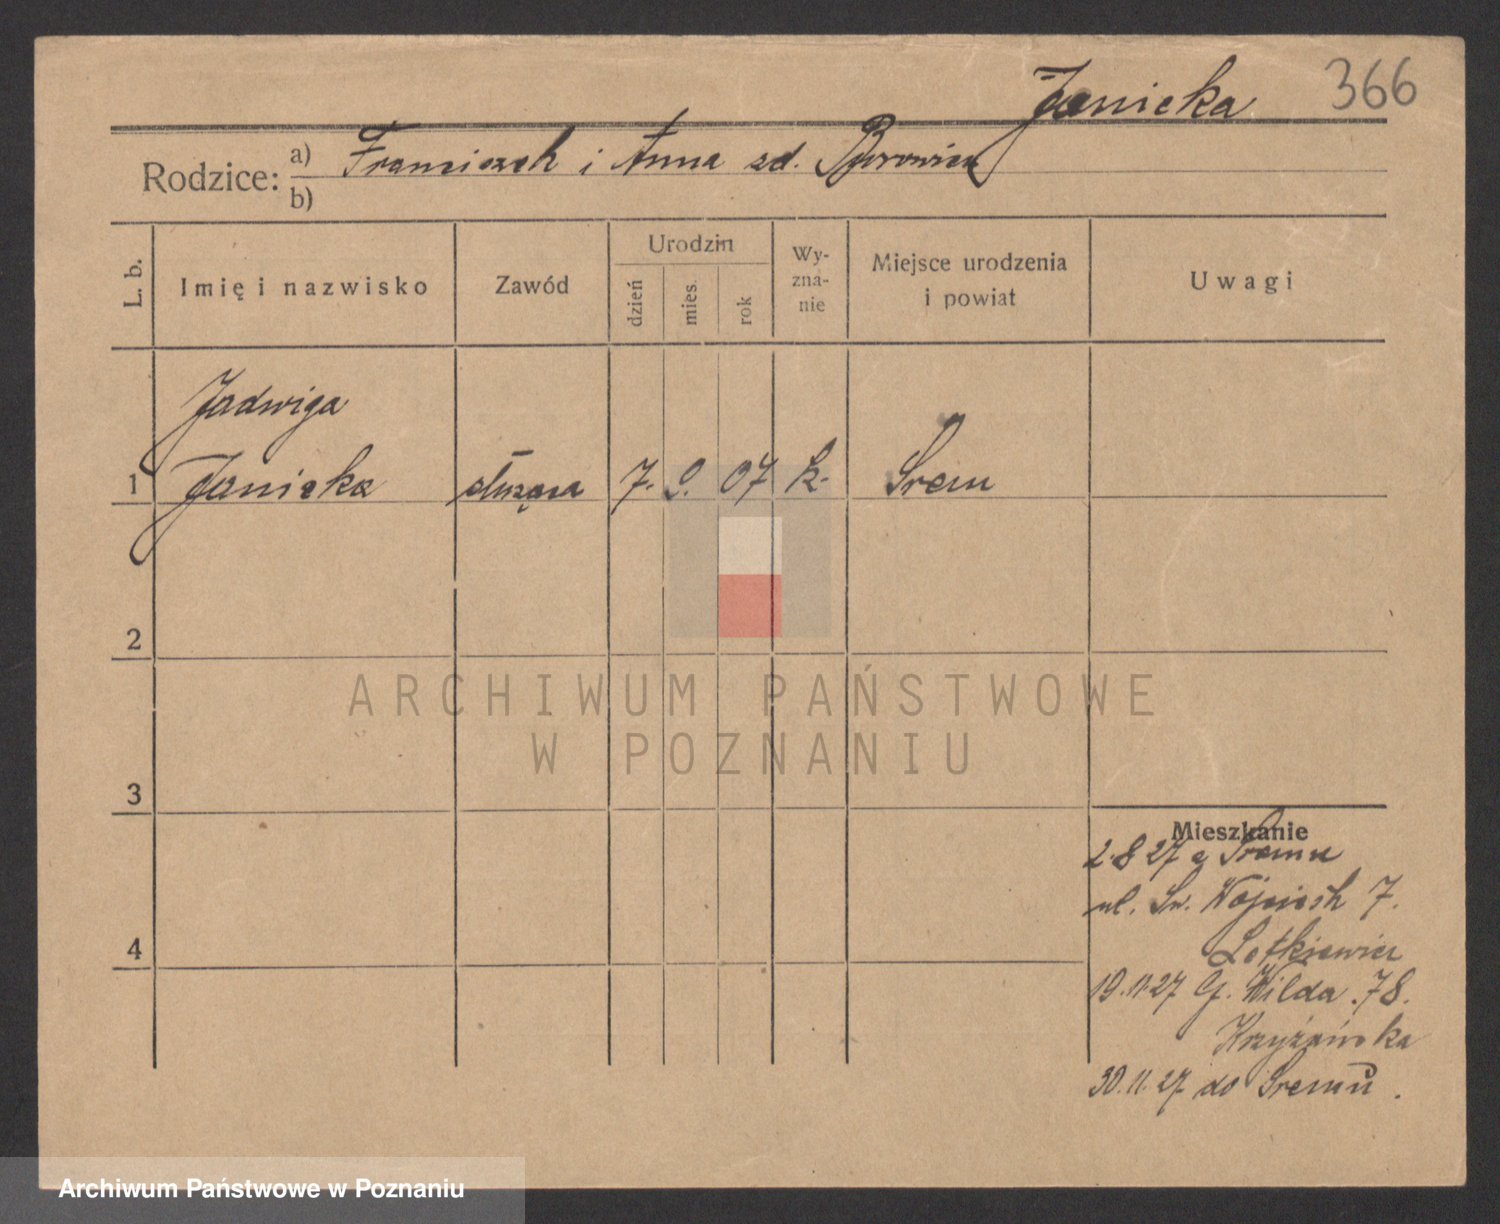 Janicka 366
Rodzice: a) Franciszek i Anna zd.
b)
L. b.
Imię i nazwisko
Zawód
Urodzin
dzień
mies.
rok
Wy-
zna-
nie
Miejsce urodzenia
i powiat
Uwagi
Jadwiga
1 Janicka służąca 7. 9. 07 k. Śrem
2
3
4
ARCHIWUM PAŃSTWOWE
W POZNANIU
Mieszkanie
2.8 27 z Śremu
ul. Św. Wojciech 7.
19.11.27 G. Wilda 78.
Krzyżańska
30.11.27 do Śremu.
Archiwum Państwowe w Poznaniu